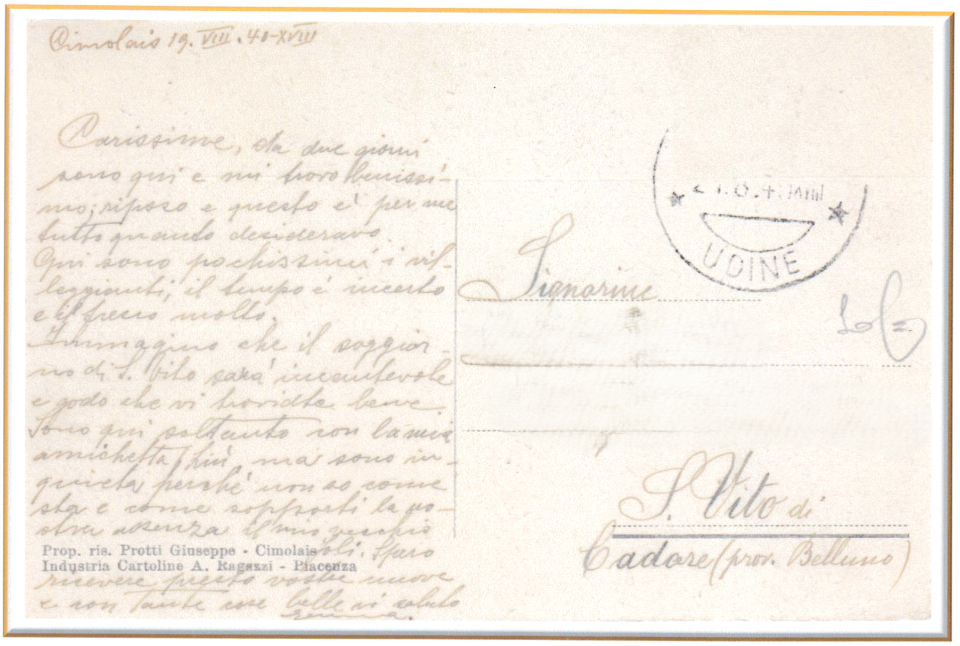 Cimolais 19. VIII. 40-XVIII
Carissime, da due giorni
sono qui e mi trovo benissi-
mo; riposo e questo è per me
tutto quanto desideravo.
Qui sono pochissimi i vil-
leggianti, il tempo è incerto
e il fresco molto.
Immagino che il soggior-
no di S. Vito sarà incantevole
e godo che vi troviate bene.
Sono qui soltanto con la mia
amichetta ma sono in-
quieta perché non so come
sta e come sopporti la no-
stra assenza il mio vecchio
Spero
ricevere presto vostre nuove
e con tante cose belle vi saluto
Prop. ris. Protti Giuseppe - Cimolais
Industria Cartoline A. Ragazzi - Piacenza
UDINE
Signorine
S. Vito di
Cadore (prov. Belluno)